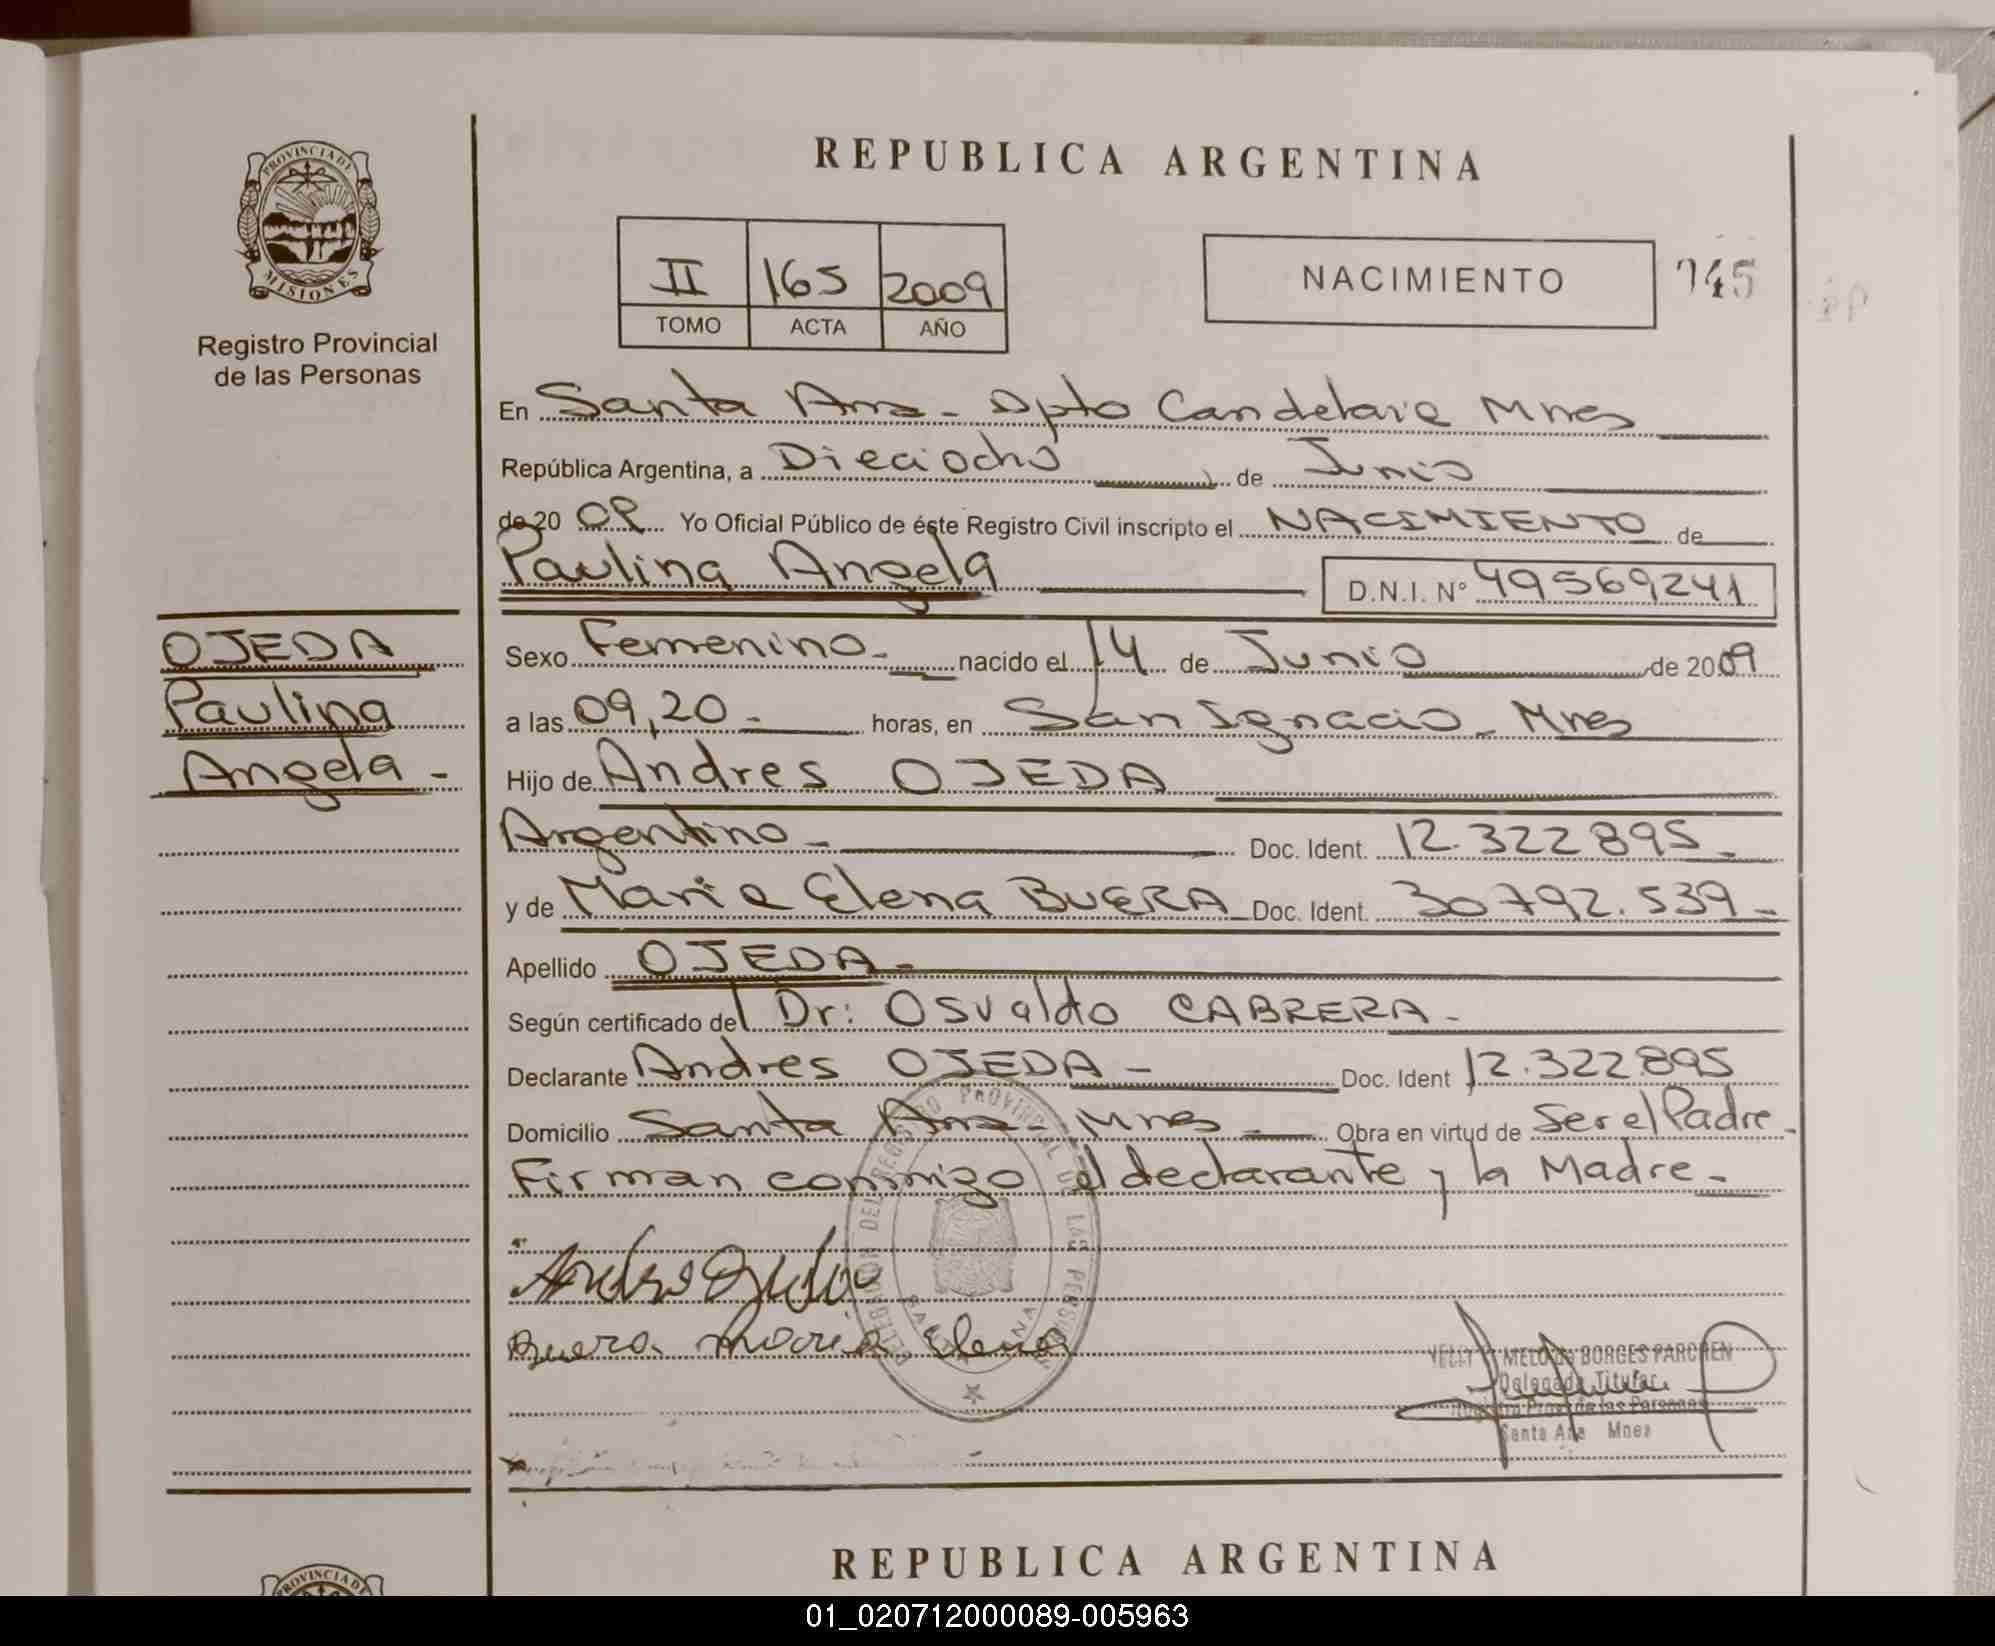 PROVINCIA DE
MISIONES
Registro Provincial
de las Personas
REPUBLICA ARGENTINA
II 165 2009
TOMO ACTA AÑO
NACIMIENTO 745
En Santa Ana - Dpto Candelaria Mnes
República Argentina, a Dieciocho de Junio
de 20 09 Yo Oficial Público de éste Registro Civil inscripto el NACIMIENTO de
Paulina Angela D.N.I. Nº 49569241
OJEDA
Paulina
Angela -
Sexo Femenino - nacido el 14 de Junio de 2009
a las 09,20 - horas, en San Ignacio - Mnes
Hijo de Andres OJEDA
Argentino - Doc. Ident. 12.322895 -
y de Maria Elena BUERA Doc. Ident. 30792.539 -
Apellido OJEDA -
Según certificado del Dr: Osvaldo CABRERA -
Declarante Andres OJEDA - Doc. Ident 12.322895
Domicilio Santa Ana - Mnes - Obra en virtud de Ser el Padre -
Firman conmigo el declarante y la Madre -
Andres Ojeda
Buera Maria Elena
DEL REGISTRO PROVINCIAL DE LAS PERSONAS
SANTA ANA
MELO de BORGES PARCHEN
Delegada Titular
Registro Prov. de las Personas
Santa Ana Mnes
REPUBLICA ARGENTINA
PROVINCIA DE
01_020712000089-005963